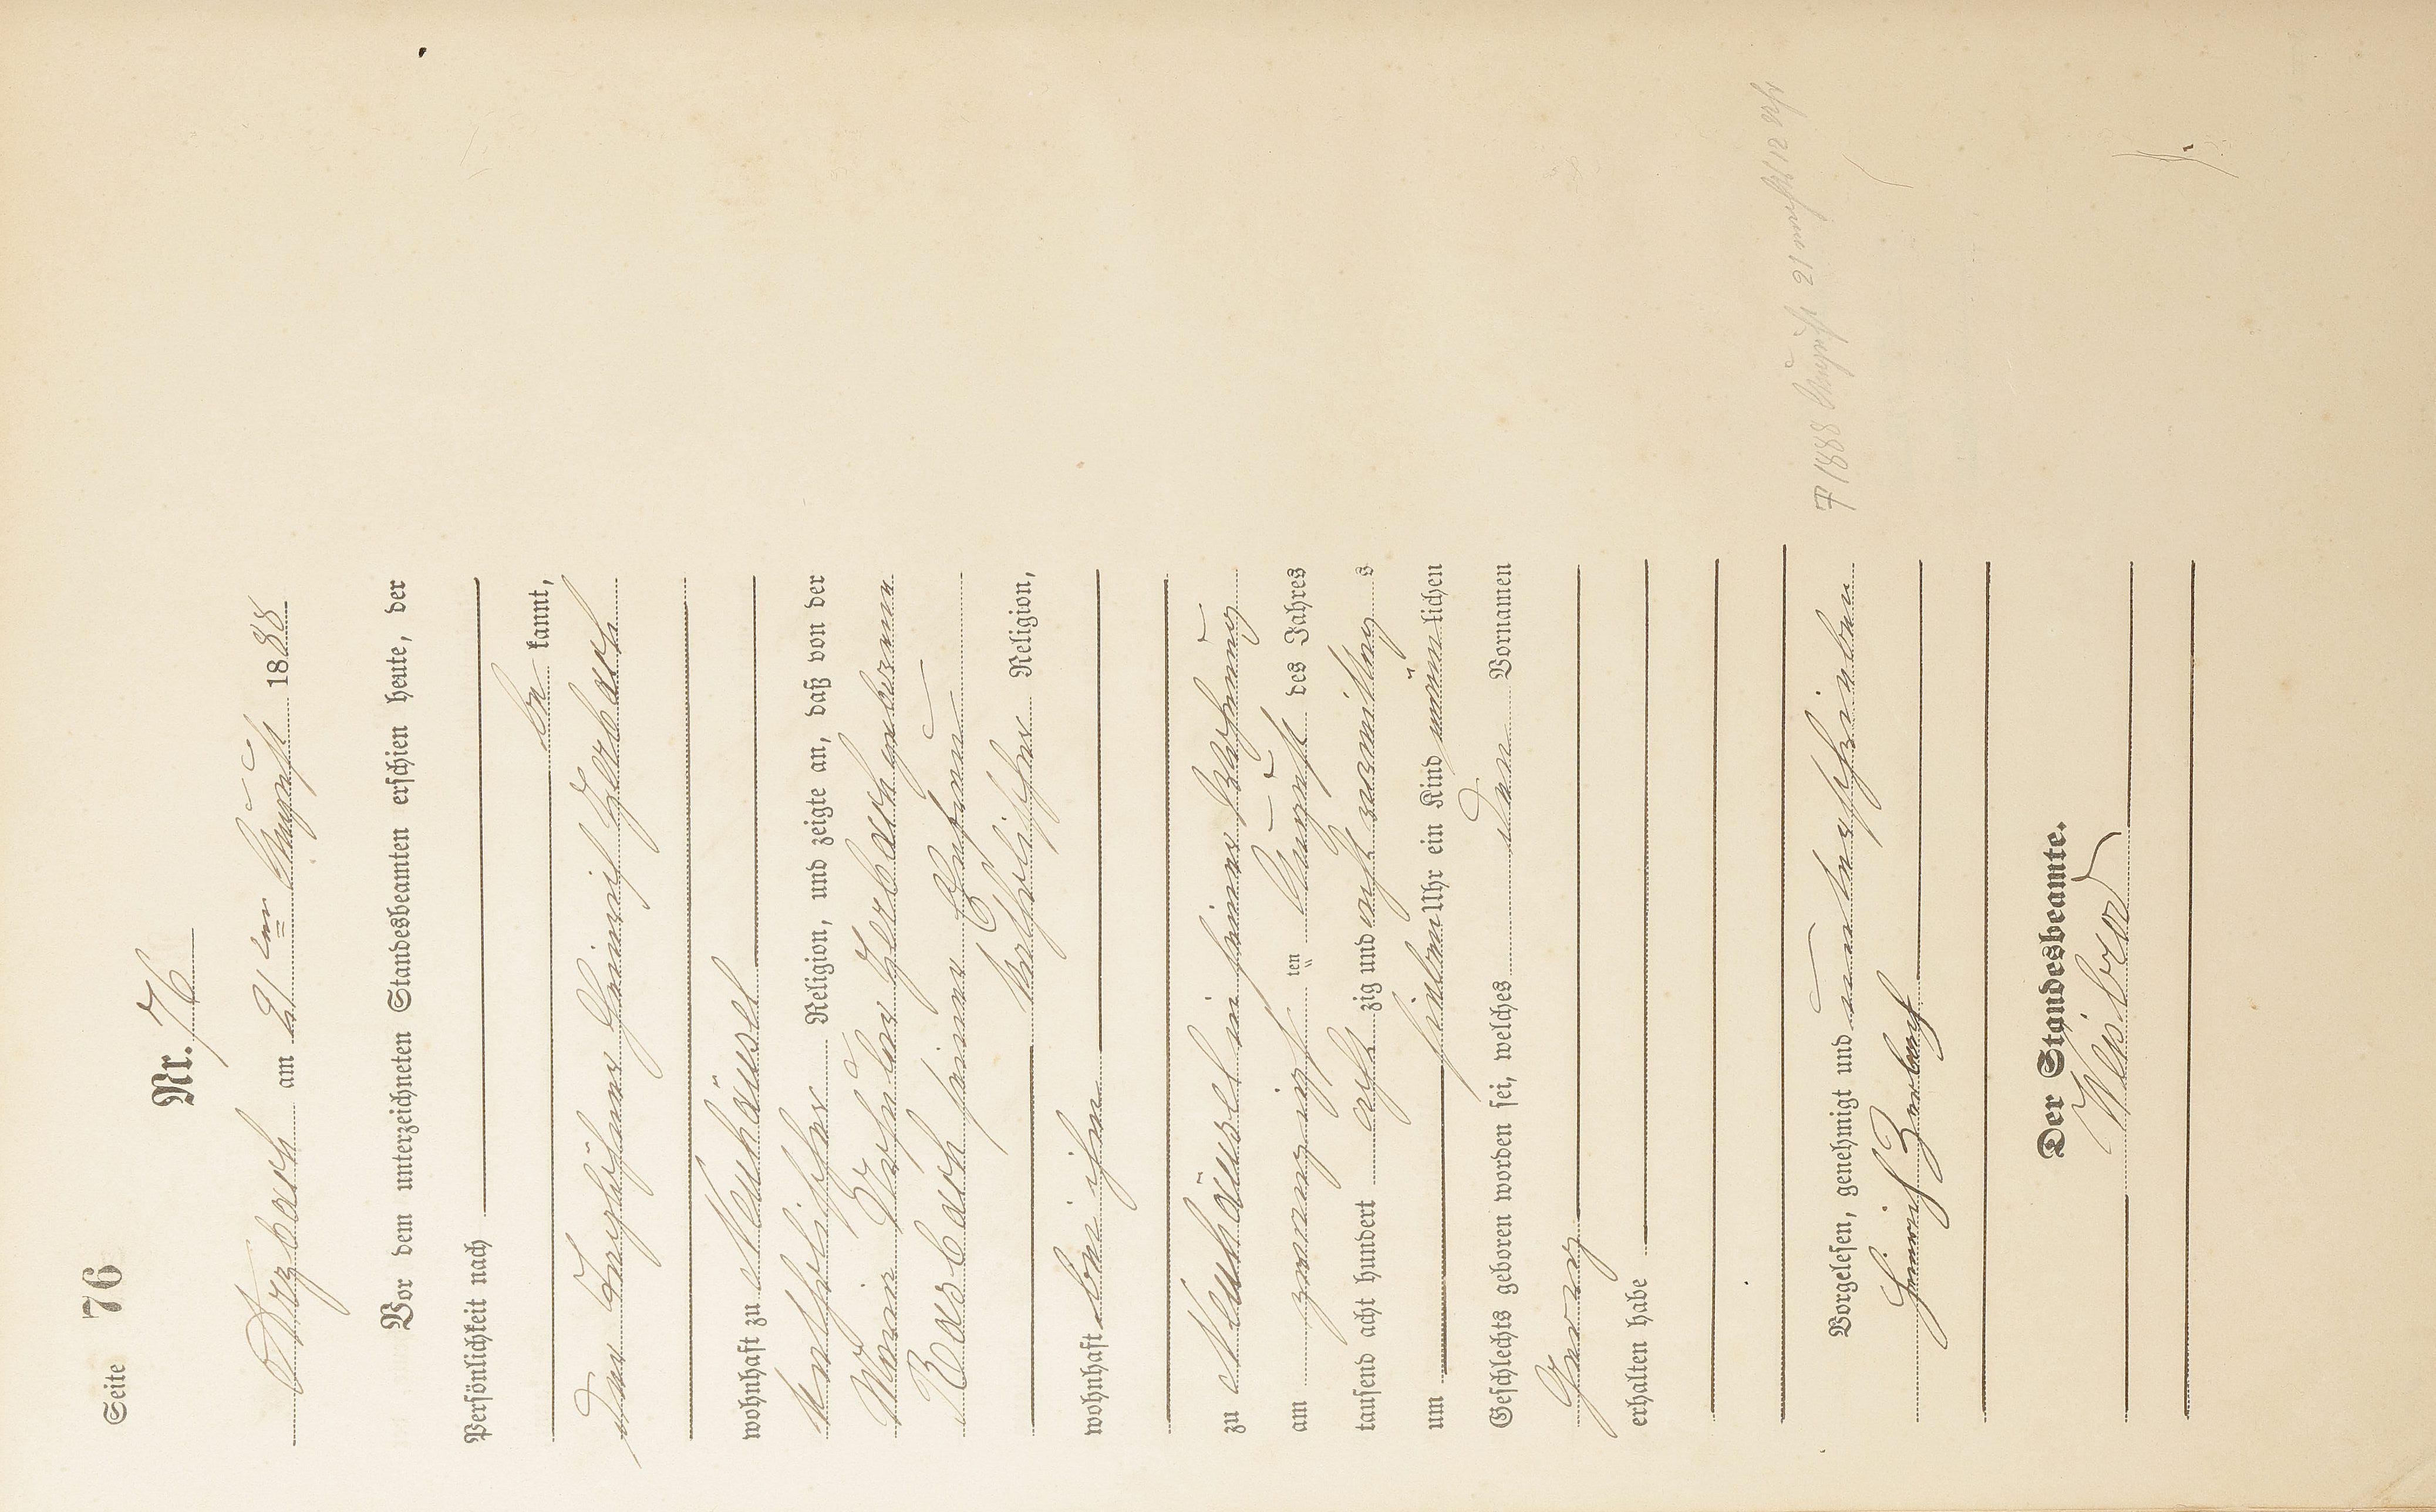 Seite 76
Nr. 76
Arzbach am 21ten August 1888
Vor dem unterzeichneten Standesbeamten erschien heute, der
Persönlichkeit nach
be kannt,
der Tagelöhner Heinrich Zerbach
wohnhaft zu Neuhäusel
katholischer Religion, und zeigte an, daß von der
Maria Zerbach geborenen
Basbach seiner Ehefrau
katholischer Religion,
wohnhaft bei ihm
zu Neuhäusel in seiner Wohnung
am zwanzigsten August des Jahres
tausend acht hundert acht zig und acht vormittags
um sieben Uhr ein Kind männlichen
Geschlechts geboren worden sei, welches den Vornamen
Georg
erhalten habe
Vorgelesen, genehmigt und unterschrieben
Heinrich Zerbach
Der Standesbeamte.
1888 August 21